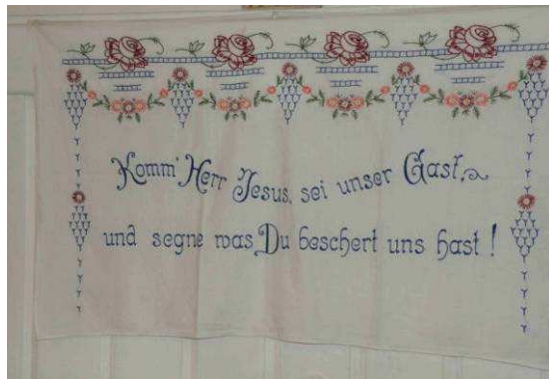 Komm' Herr Jesus, sei unser Gast,
und segne was Du beschert uns hast !